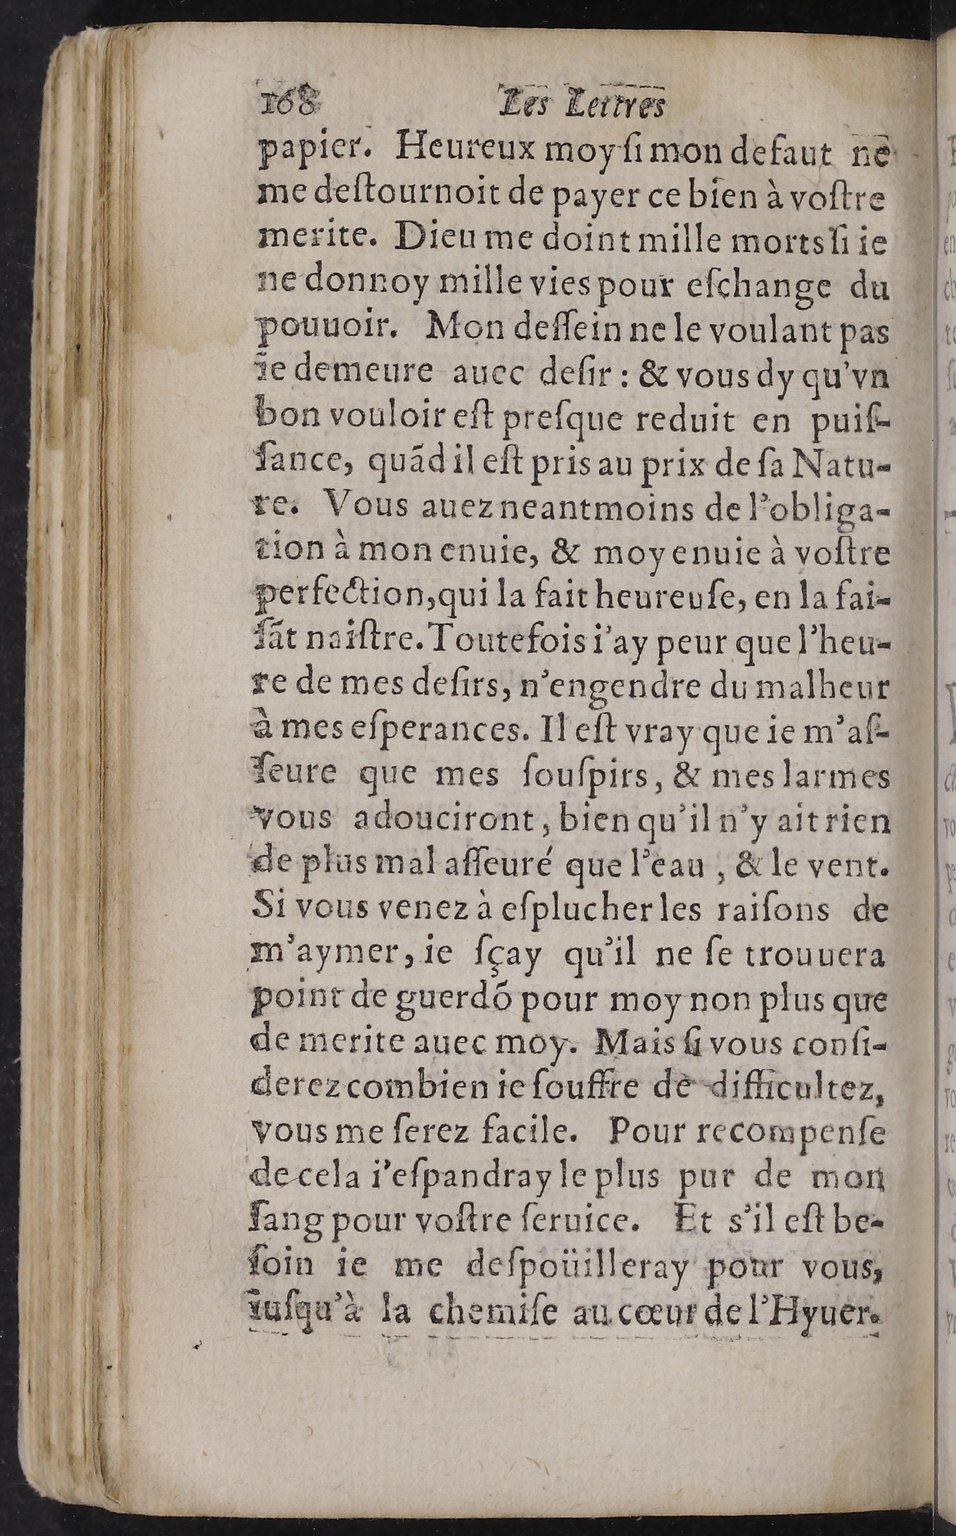 168 Les Lettres
papier. Heureux moy ſi mon defaut ne
me deſtournoit de payer ce bien à voſtre
merite. Dieu me doint mille morts ſi ie
ne donnoy mille vies pour eſchange du
pouuoir. Mon deſſein ne le voulant pas
ie demeure auec deſir : & vous dy qu'vn
bon vouloir eſt preſque reduit en puiſ-
ſance, quãd il eſt pris au prix de ſa Natu-
re. Vous auez neantmoins de l'obliga-
tion à mon enuie, & moy enuie à voſtre
perfection, qui la fait heureuſe, en la fai-
ſãt naiſtre. Toutefois i'ay peur que l'heu-
re de mes deſirs, n'engendre du malheur
à mes eſperances. Il eſt vray que ie m'aſ-
ſeure que mes ſouſpirs, & mes larmes
vous adouciront, bien qu'il n'y ait rien
de plus mal aſſeuré que l'eau , & le vent.
Si vous venez à eſplucher les raiſons de
m'aymer, ie ſçay qu'il ne ſe trouuera
point de guerdõ pour moy non plus que
de merite auec moy. Mais ſi vous conſi-
derez combien ie ſouffre de difficultez,
vous me ſerez facile. Pour recompenſe
de cela i'eſpandray le plus pur de mon
ſang pour voſtre ſeruice. Et s'il eſt be-
ſoin ie me deſpoüilleray pour vous,
iuſqu'à la chemiſe au cœur de l'Hyuer.